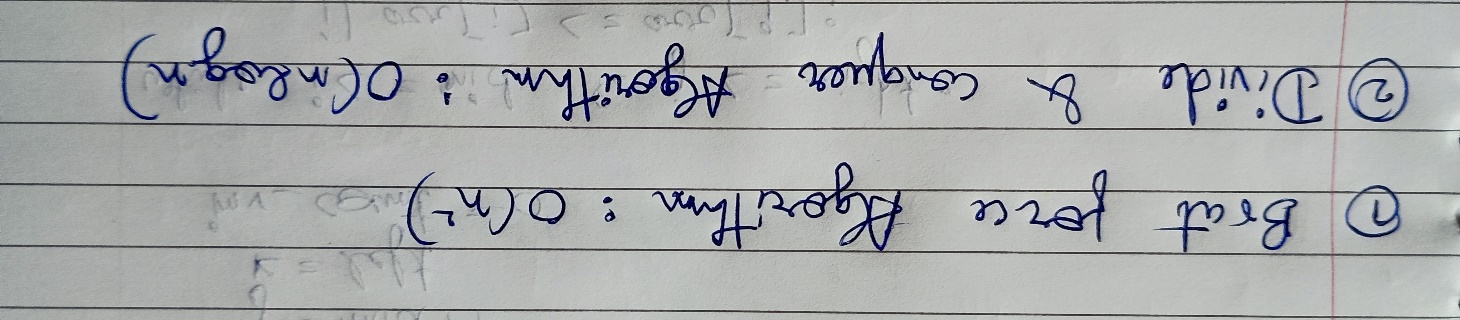 ① Brat force Algorithm : O(n²)
② Divide & Conquer Algorithm : O(n log n)